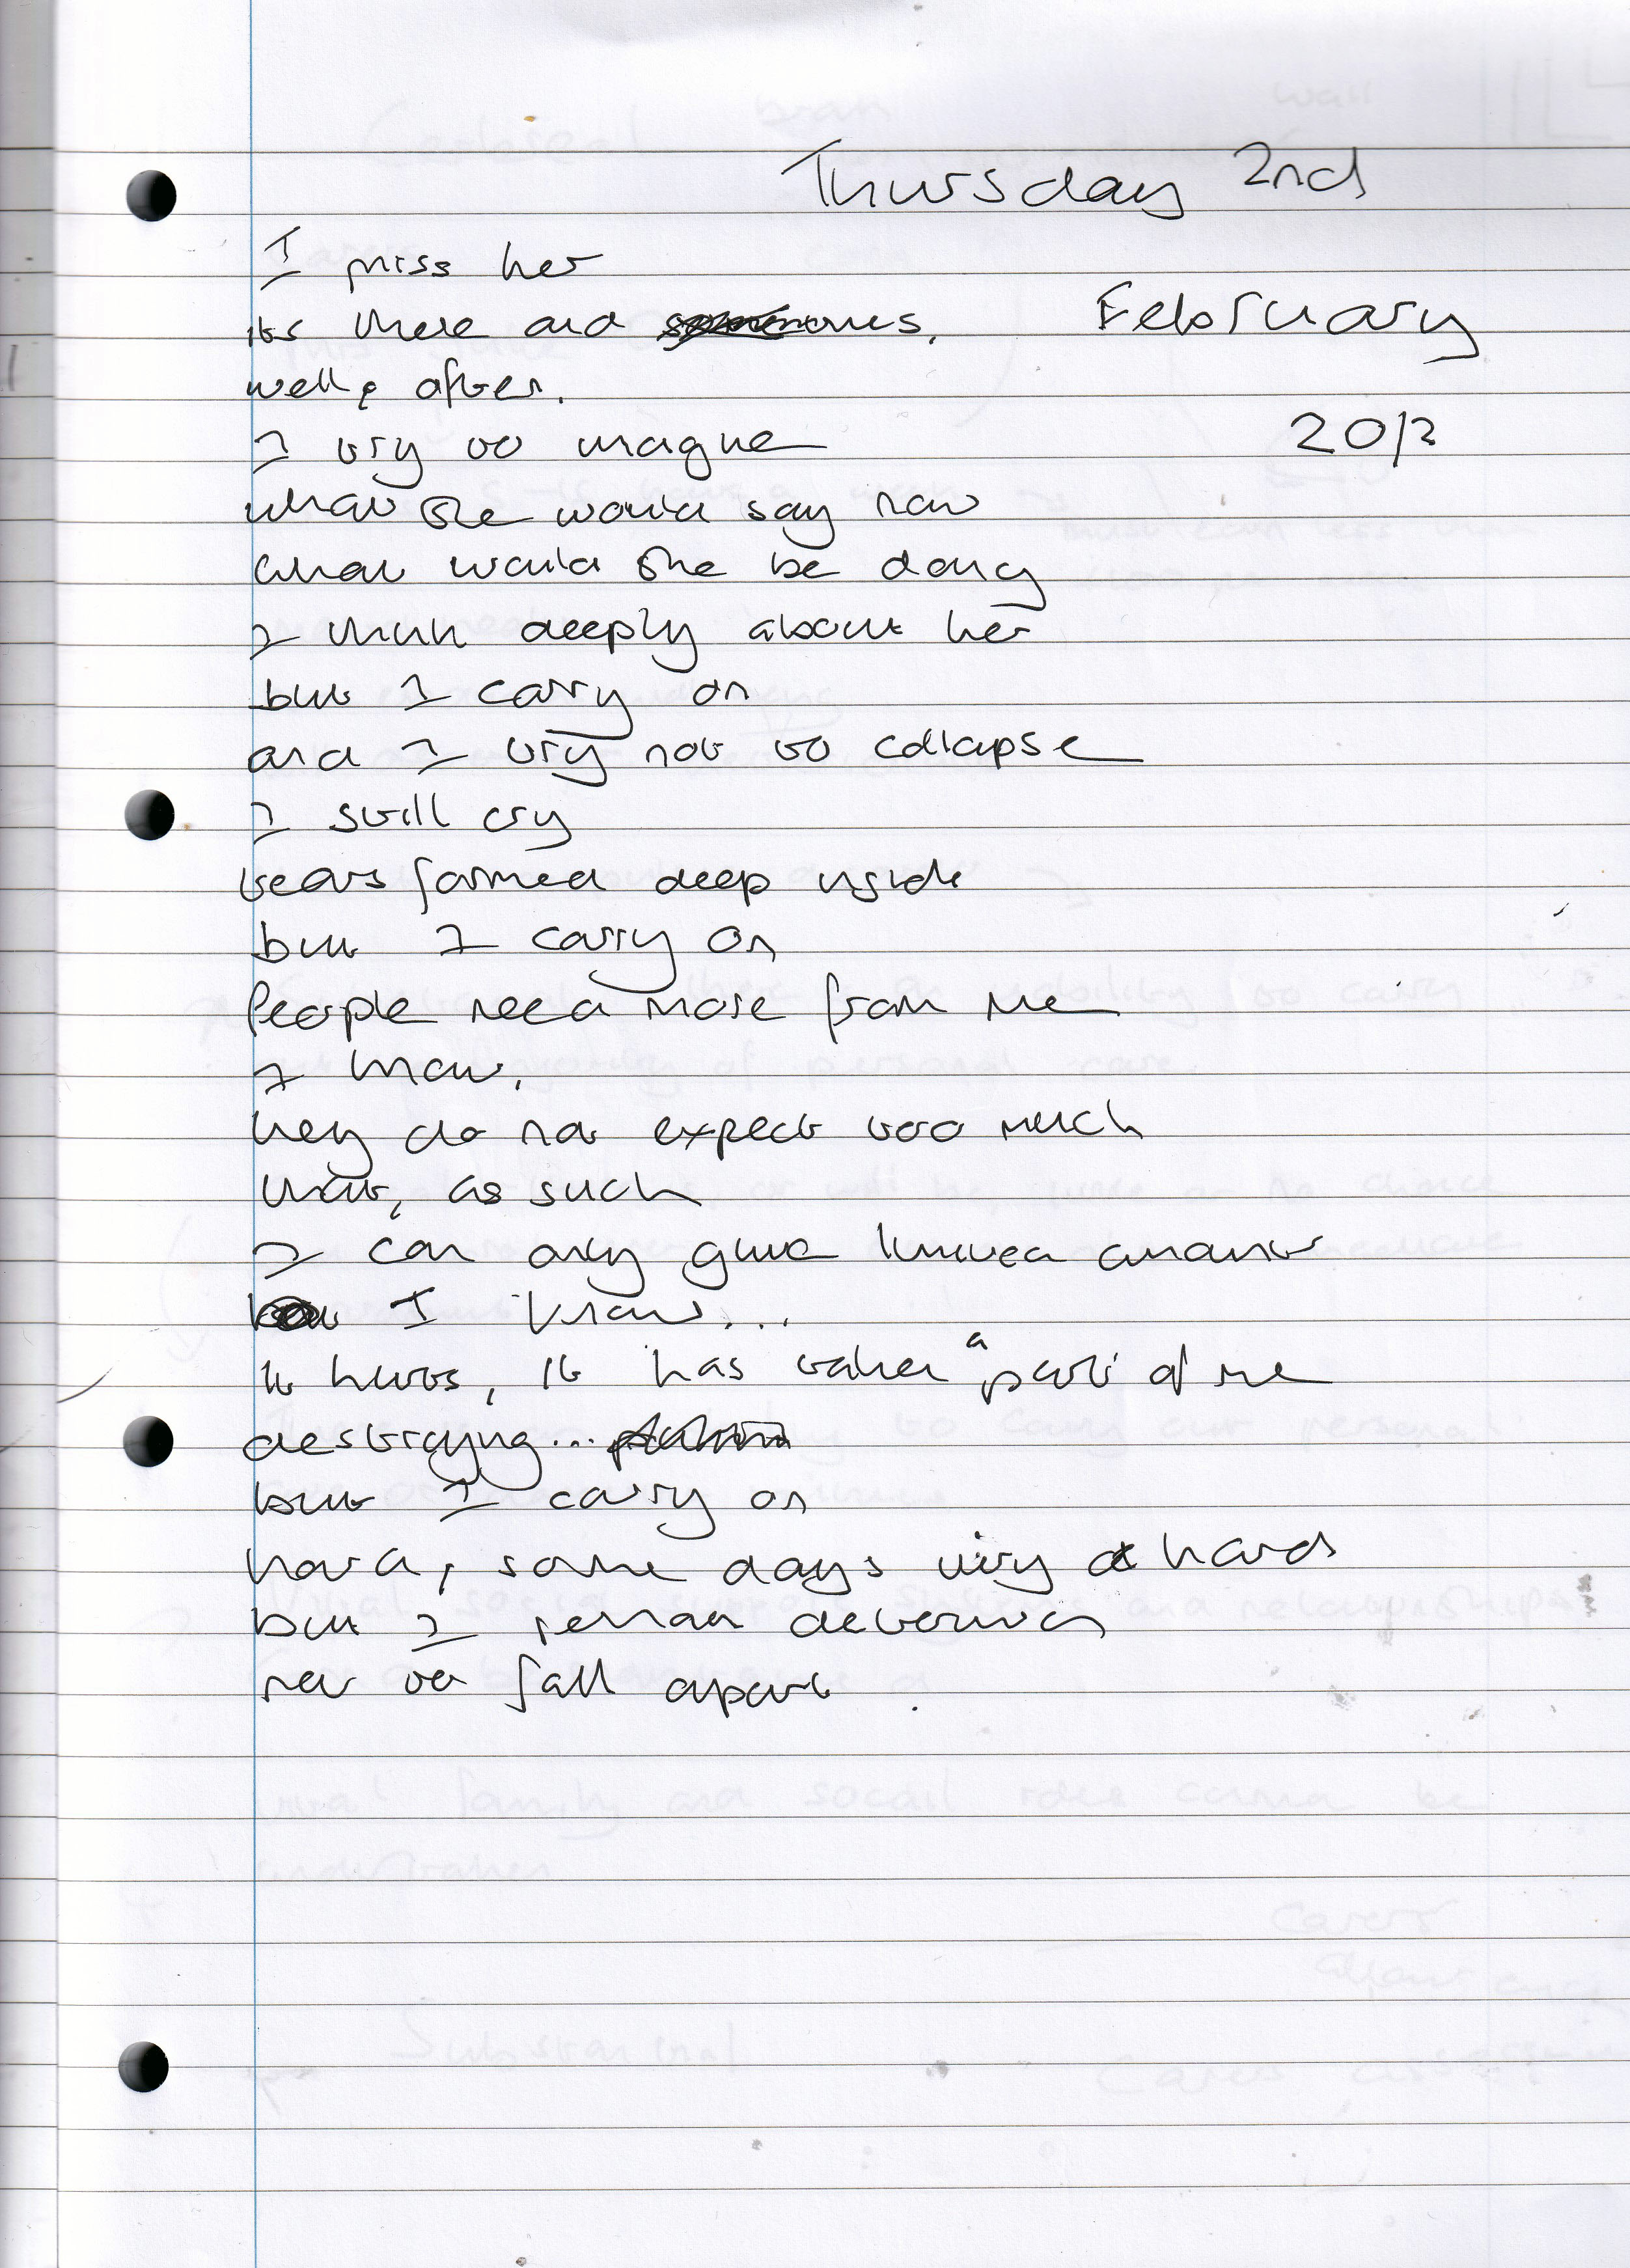 Thursday 2nd
I miss her
its there and sometimes,
February
well, often.
2012
I try to imagine
what she would say now
what would she be doing
I think deeply about her
but I carry on
and I try not to collapse
I still cry
tears formed deep inside
but I carry on
People need more from me
I know,
they do not expect too much
that, as such
I can only give limited amounts
I know...
it hurts, it has taken a part of me
destroying...
but I carry on
hard, some days very hard
but I remain determined
not to fall apart.